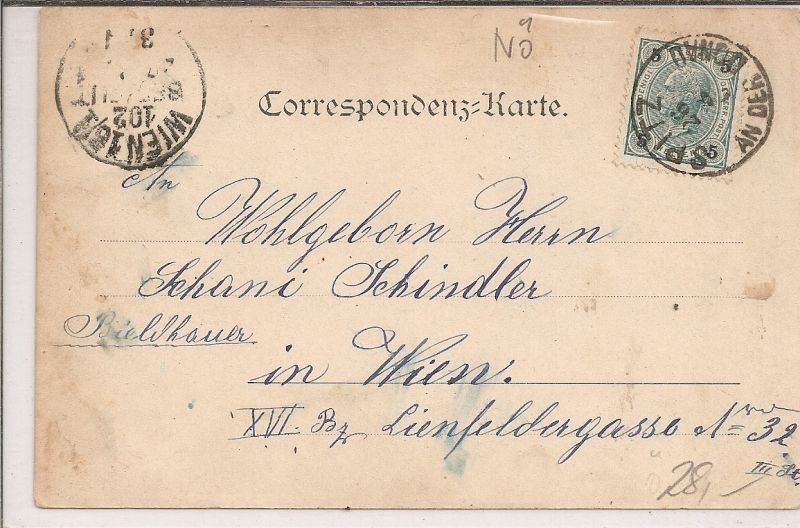 NÖ
WIEN 16/1
102
SPITZ AN DER DONAU
26
5 5
5 5
Correspondenz-Karte.
An
Wohlgeborn Herrn
Schani Schindler
Bieldhauer
in Wien.
XVI. Bz Lienfeldergasse Nro 32
III St.
28,